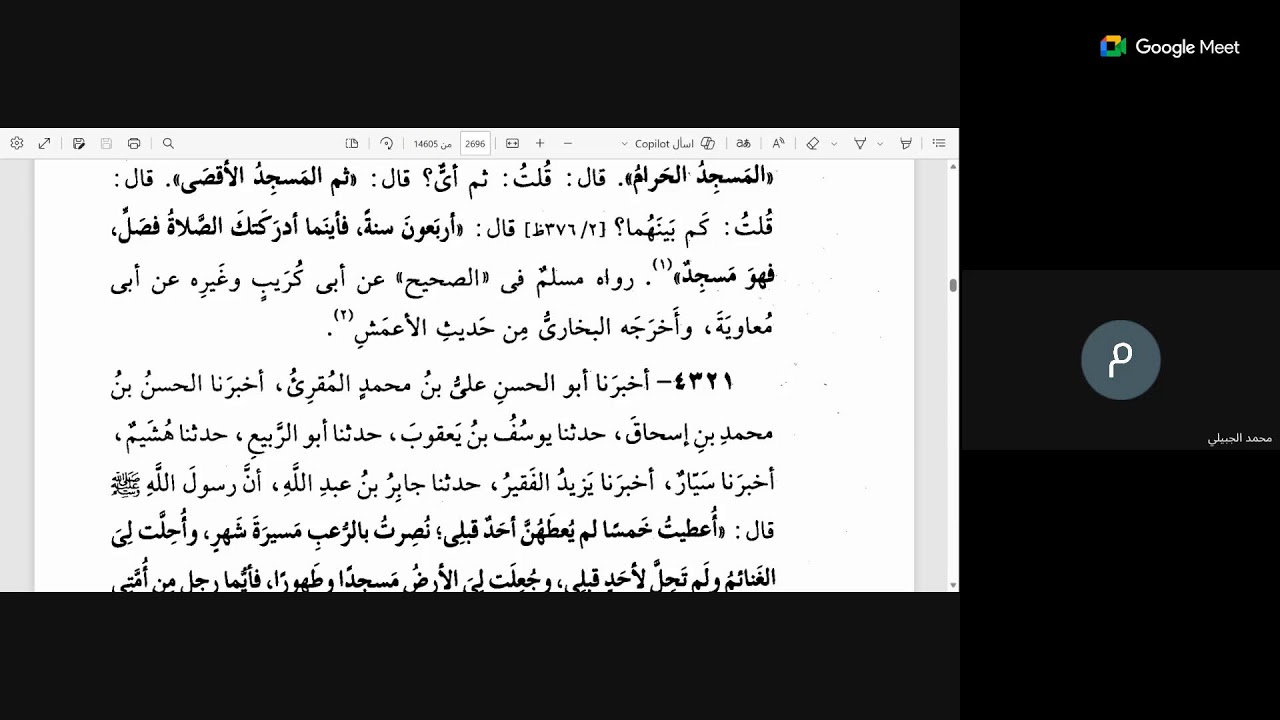 Google Meet
اسأل Copilot
2696
من 14605
«المَسجِدُ الحَرامُ». قال: قُلتُ: ثم أىٌّ؟ قال: «ثم المَسجِدُ الأقصَى». قال:
قُلتُ: كَم بَينَهُما؟ [٢/ ٣٧٦ظ] قال: «أربَعونَ سنةً، فأينَما أدرَكَتكَ الصَّلاةُ فصَلِّ،
فهوَ مَسجِدٌ»(١). رواه مسلمٌ فى «الصحيح» عن أبى كُرَيبٍ وغَيرِه عن أبى
مُعاويَةَ، وأَخرَجَه البخارىُّ مِن حَديثِ الأعمَشِ(٢).
٤٣٢١- أخبرَنا أبو الحسنِ علىُّ بنُ محمدٍ المُقرِئُ، أخبرَنا الحسنُ بنُ
محمدِ بنِ إسحاقَ، حدثنا يوسُفُ بنُ يَعقوبَ، حدثنا أبو الرَّبيعِ، حدثنا هُشَيمٌ،
أخبرَنا سَيّارٌ، أخبرَنا يَزيدُ الفَقيرُ، حدثنا جابِرُ بنُ عبدِ اللَّهِ، أنَّ رسولَ اللَّهِ ﷺ
قال: «أُعطيتُ خَمسًا لم يُعطَهُنَّ أحَدٌ قبلِى؛ نُصِرتُ بالرُّعبِ مَسيرَةَ شَهرٍ، وأُحِلَّت لِىَ
الغَنائمُ ولَم تَحِلَّ لأحَدٍ قبلِى، وجُعِلَت لِىَ الأرضُ مَسجِدًا وطَهورًا، فأيُّما رجلٍ مِن أُمَّتِى
م
محمد الجبيلي